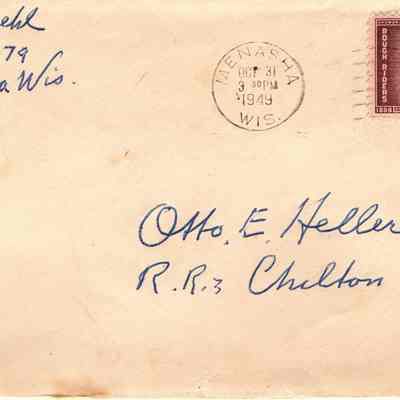 ehl
79
a Wis.
MENASHA
OCT 31
3 30 PM
1949
WIS.
ROUGH RIDERS
1898
Otto. E. Heller
R.R. 3 Chilton